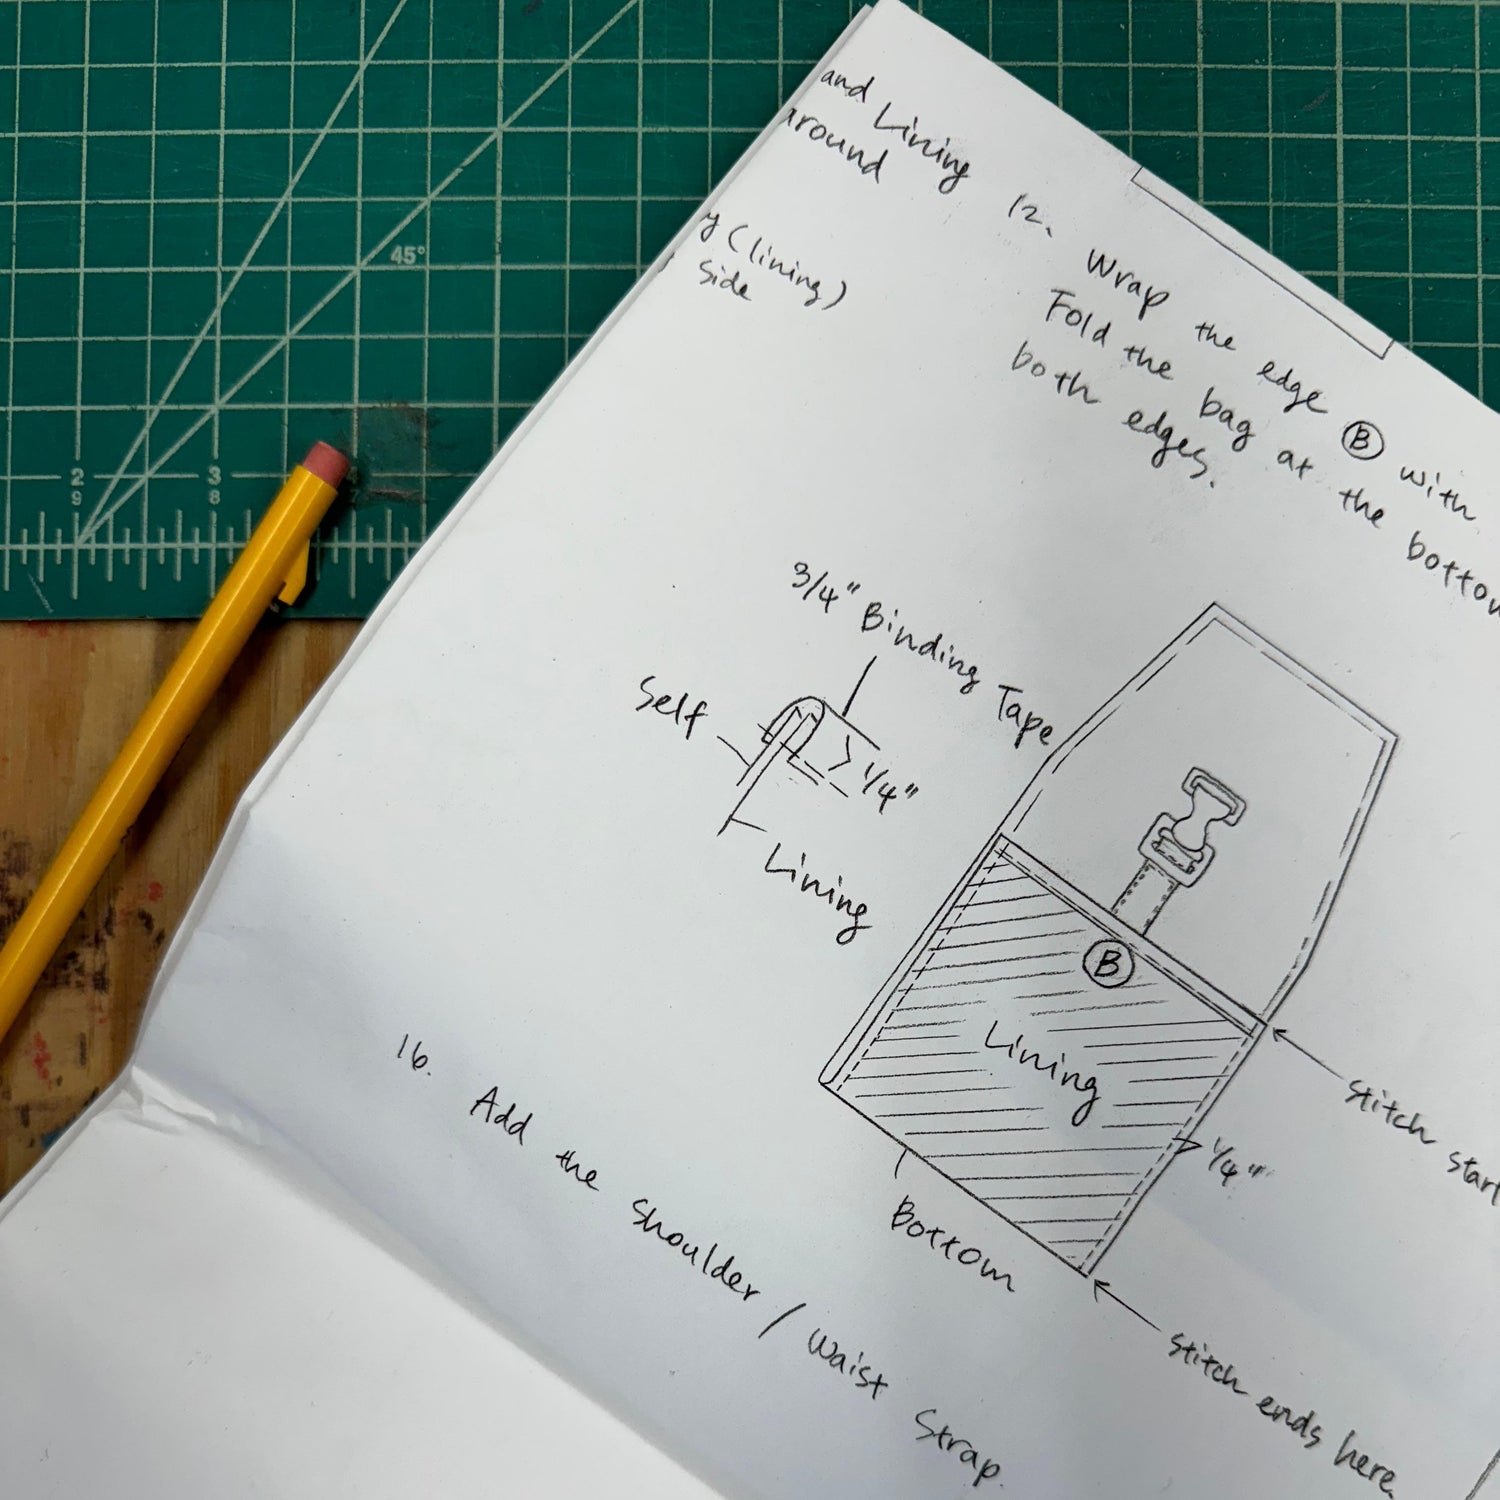 and Lining
around
(lining)
side
12. Wrap the edge Ⓑ with
Fold the bag at the
both edges.
3/4" Binding Tape
Self
1/4"
Lining
B
Lining
Stitch start
1/4"
Bottom
Stitch ends here.
16. Add the shoulder / Waist Strap.
45°
2
3
9
8
7